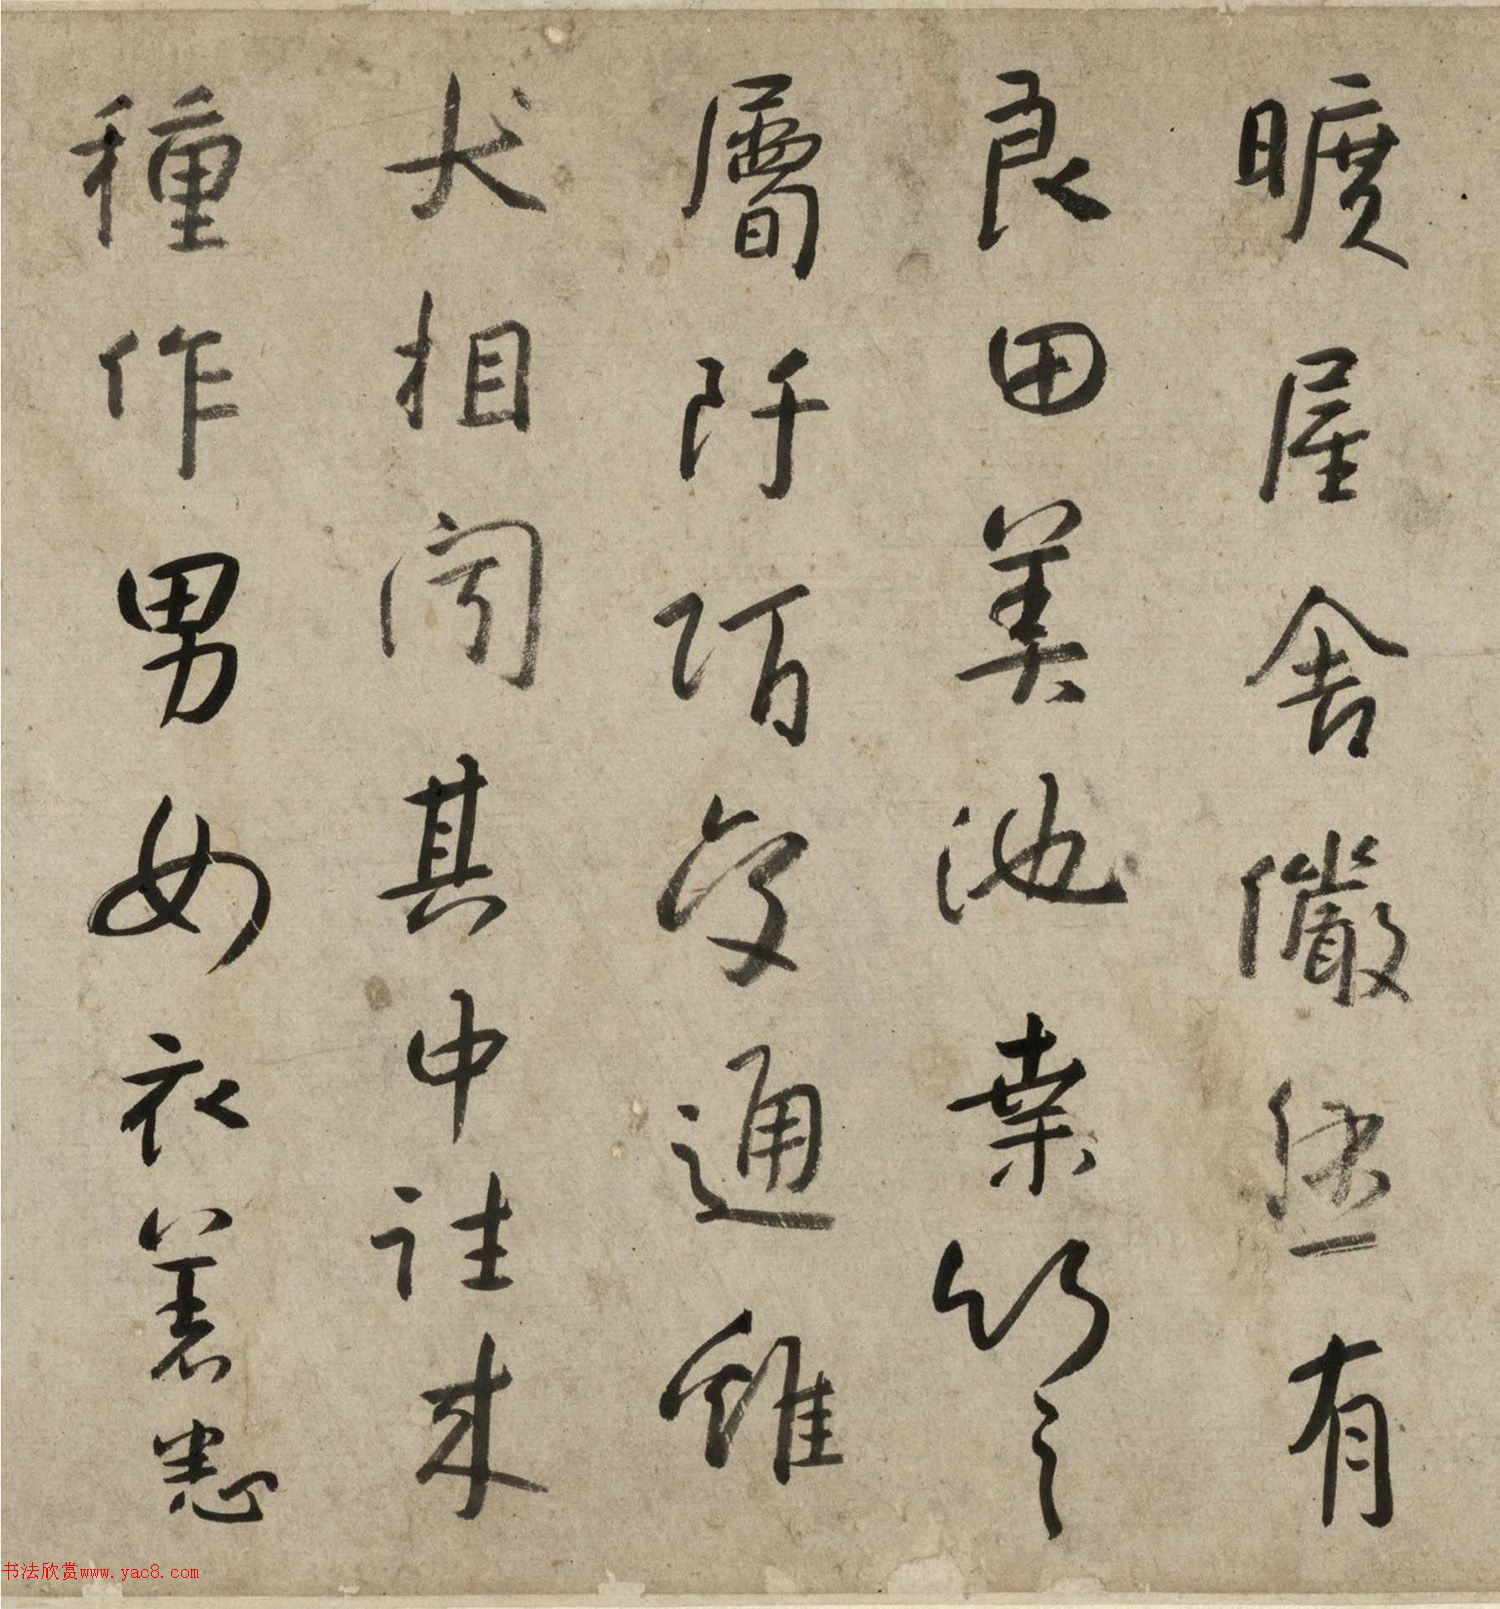 曠屋舍儼然有
良田美池桑竹之
屬阡陌交通雞
犬相聞其中往來
種作男女衣著悉
书法欣赏www.yac8.com